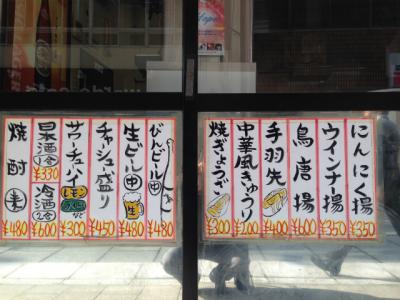 にんにく揚 ¥350
ウインナー揚 ¥350
鳥唐揚 ¥600
手羽先 ¥400
中華風きゅうり ¥200
焼ぎょうざ ¥300
びんビール 中 ¥480
生ビール 中 生 ¥480
チャーシュー盛り ¥450
サワーチューハイ レモン など ¥300
冷酒 2合 ¥600
日本酒 1合 ¥330
焼酎 麦 ¥480